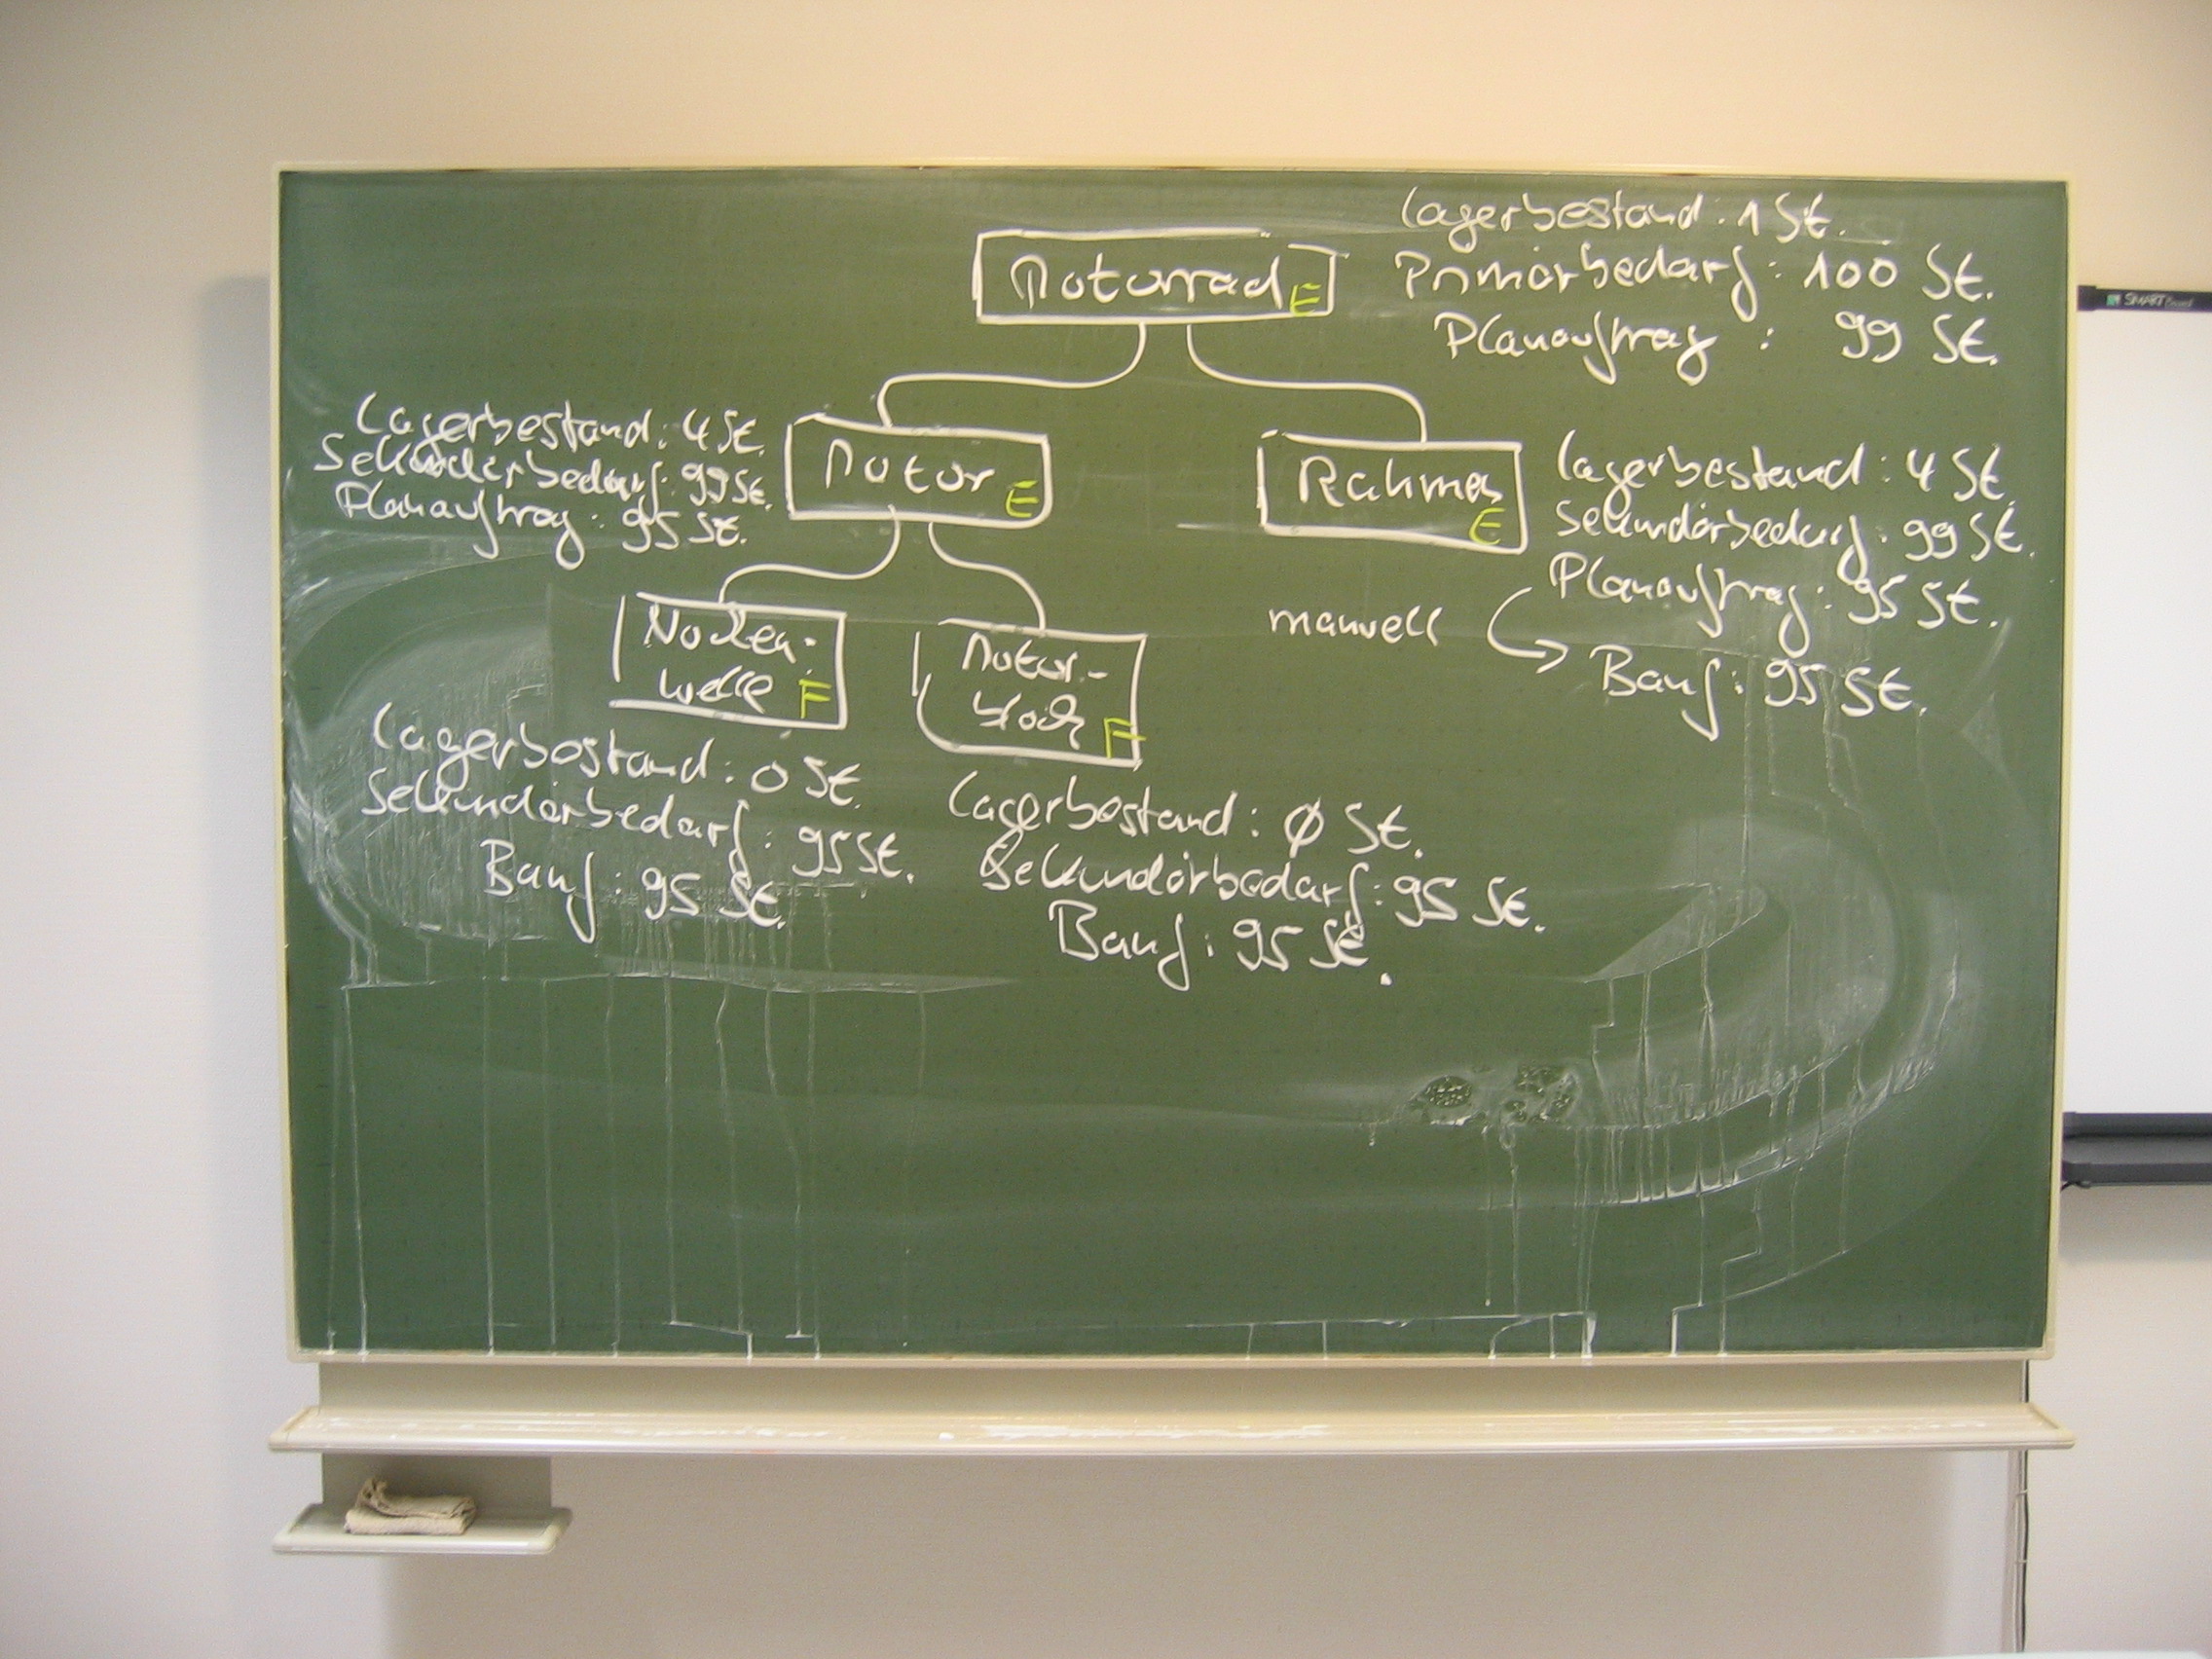 Lagerbestand: 1 St.
Primärbedarf: 100 St.
Planauftrag: 99 St.
Motorrad E
SMART Board
Lagerbestand: 4 St.
Sekundärbedarf: 99 St.
Planauftrag: 95 St.
Motor E
Rahmen E
Lagerbestand: 4 St.
Sekundärbedarf: 99 St.
Planauftrag: 95 St.
manuell
Banf: 95 St.
Nocken-
welle F
Motor-
block F
Lagerbestand: 0 St.
Sekundärbedarf: 95 St.
Banf: 95 St.
Lagerbestand: Ø St.
Sekundärbedarf: 95 St.
Banf: 95 St.